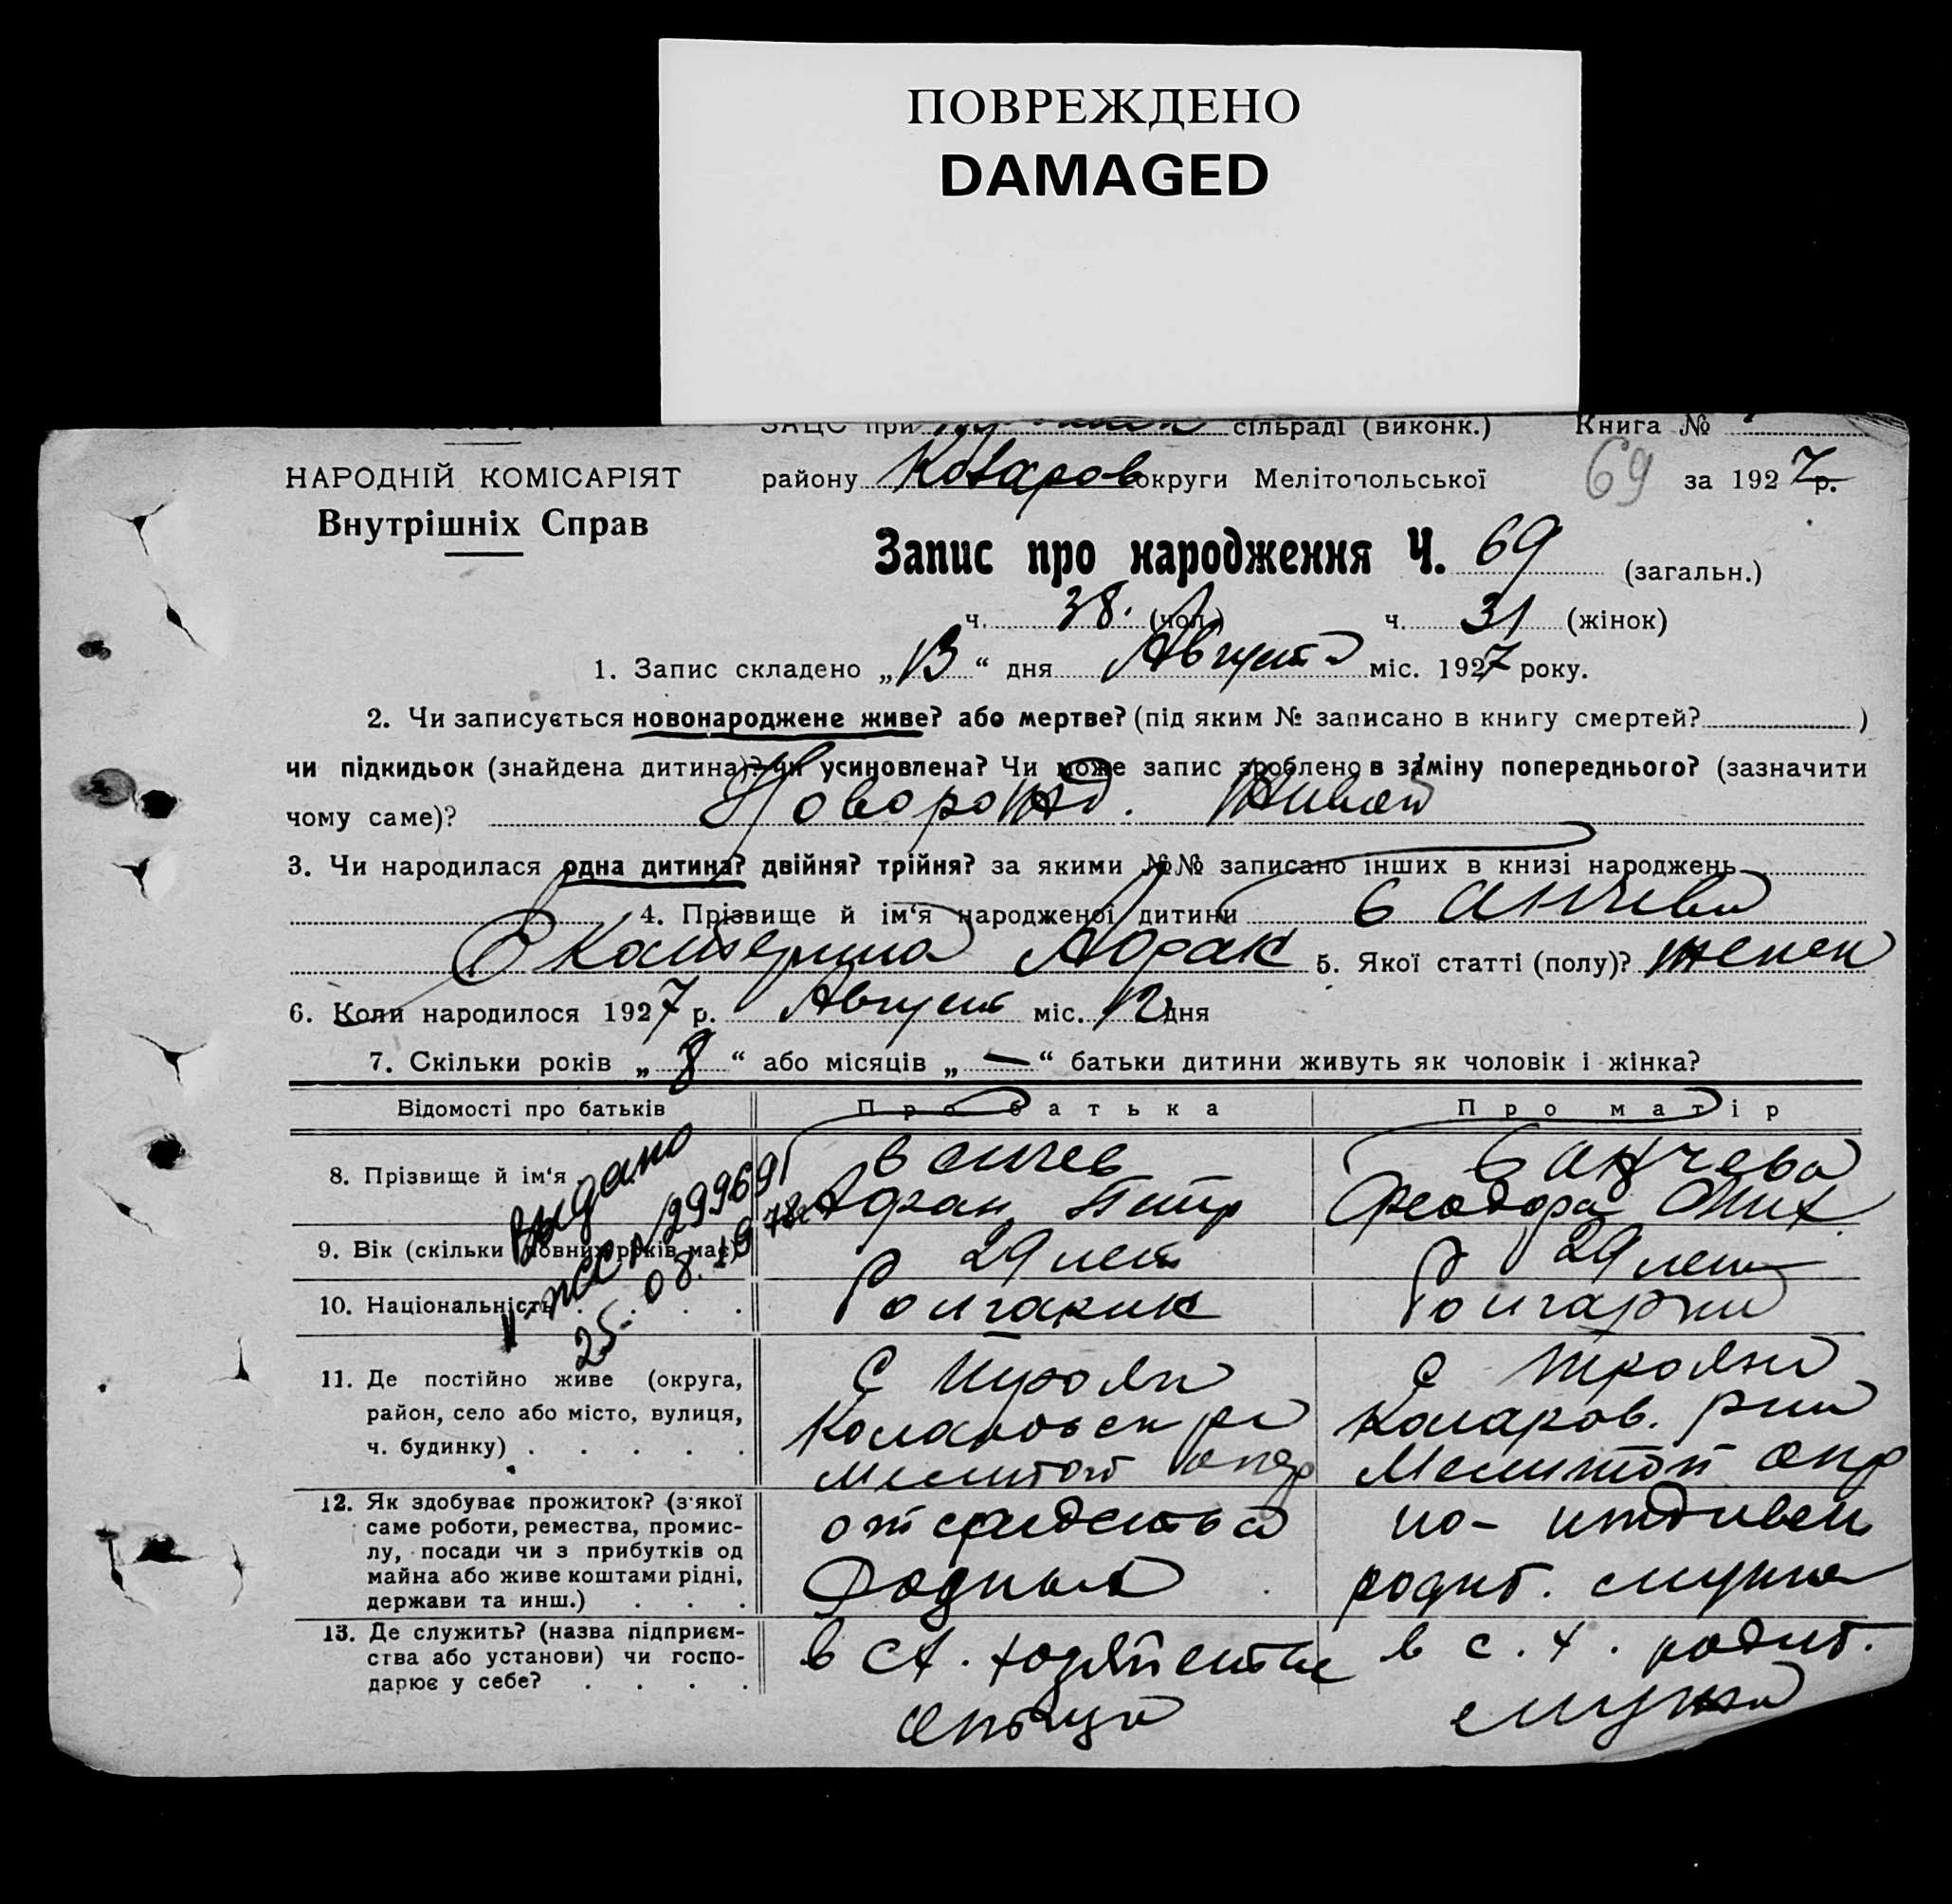 ПОВРЕЖДЕНО
DAMAGED
ЗАЦС при сільраді (виконк.) Книга №
НАРОДНІЙ КОМІСАРІЯТ
Внутрішніх Справ
району Коларов округи Мелітопольської 69 за 1927 р.
Запис про народження Ч. 69 (загальн.)
ч. 38. (чол.) ч. 31 (жінок)
1. Запис складено „13“ дня Августа міс. 1927 року.
2. Чи записується новонароджене живе? або мертве? (під яким № записано в книгу смертей? )
чи підкидьок (знайдена дитина)? чи усиновлена? Чи може запис зроблено в заміну попереднього? (зазначити
чому саме)? Новорожд. живой
3. Чи народилася одна дитина? двійня? трійня? за якими №№ записано інших в книзі народжень
4. Прізвище й ім‘я народженої дитини
Екатерина 5. Якої статті (полу)? женск
6. Коли народилося 1927 р. Август міс. 12 дня
7. Скільки років „ 8 “ або місяців „ — “ батьки дитини живуть як чоловік і жінка?
Відомості про батьків Про батька Про матір
8. Прізвище й ім‘я
Петр Феодора
выдано
29969
25. 08. 1978
9. Вік (скільки повних років має) 29 лет 29 лет
10. Національність Болгарин Болгарки
11. Де постійно живе (округа,
район, село або місто, вулиця,
ч. будинку)
С Трояны
Коларовск
Мелитоп окр
с Трояны
Коларов. рна
Мелитоп окр
12. Як здобуває прожиток? (з'якої
саме роботи, ремества, промис-
лу, посади чи з прибутків од
майна або живе коштами рідні,
держави та инш.)
от средства
Родных
иждивен
родит. мужа
13. Де служить? (назва підприєм-
ства або установи) чи госпо-
дарює у себе?
в сх. хозяйстве
отца
в с. х. родит.
мужа